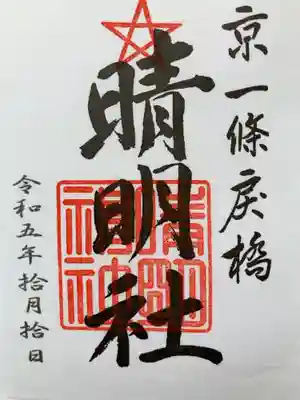 京一條戻橋
晴明社
晴明神社
令和五年拾月拾日